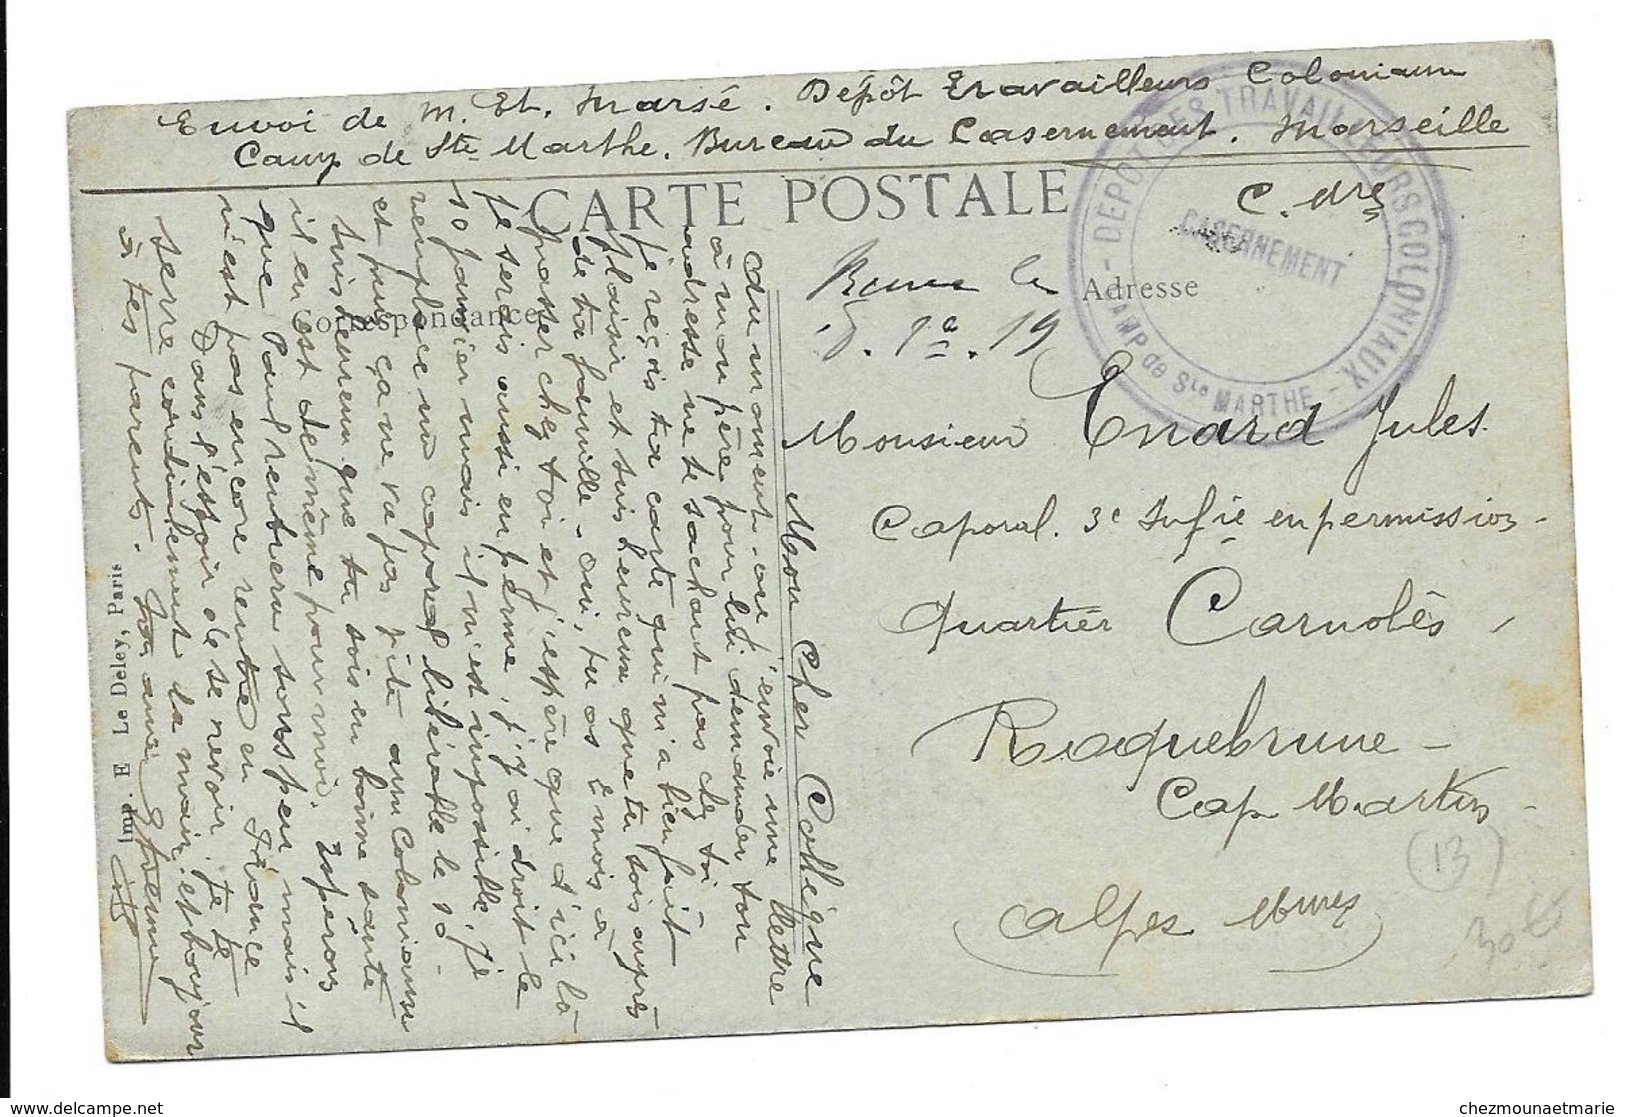 Envoi de M. Et. Marsé. Dépôt Travailleurs Coloniaux
Camp de Ste Marthe. Bureau du Casernement. Marseille
C. Mre
CARTE POSTALE
DEPOT DES TRAVAILLEURS COLONIAUX
CASERNEMENT
CAMP de Ste MARTHE
Correspondance
Adresse
le
Monsieur Enard Jules
Caporal. 3e Infie en permission -
Quartier Carnolès,
Roquebrune -
Cap Martin -
Alpes Mmes
(13)
30 €
Mon cher Collègue
Au moment où j'envoie une lettre
à mon père pour lui demander ton
adresse ne te sachant pas chez toi -
je reçois ta carte qui m'a bien fait
plaisir et suis heureux que tu sois auprès
de ta famille - Oui, tu as 2 mois à
passer chez toi et j'espère que d'ici là
je serais aussi en perme, j'y ai droit le
10 janvier mais il m'est impossible. Je
remplace un caporal libérable le 10 -
et puis ça ne va pas vite aux Coloniaux
Suis heureux que tu sois en bonne santé
il en est de même pour moi. Espérons
que Paul rentrera sous peu mais il
n'est pas encore rentré en France
Dans l'espoir de se revoir. Je te
serre cordialement la main, et bonjour
à tes parents. Ton ami Etienne
Imp. E. Le Deley, Paris
chezmounaetmarie